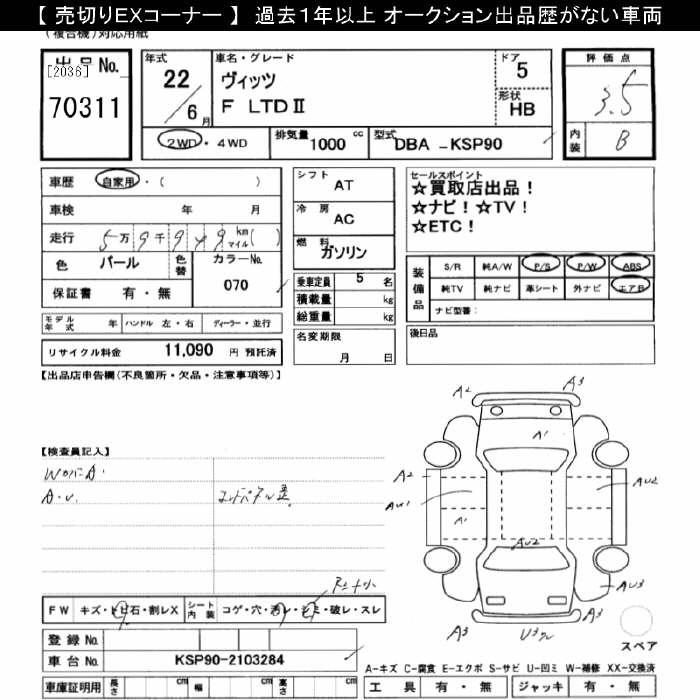 【 売切りEXコーナー 】 過去１年以上 オークション出品歴がない車両
(複合機)対応用紙
出 品 No.
[2036]
70311
年式
22
6 月
車名・グレード
ヴィッツ
F LTDⅡ
ドア
5
形状
HB
評 価 点
3.5
内装
B
2WD・4WD
排気量
1000 cc
型式
DBA -KSP90
車歴 自家用・( )
車検 年 月
走行 5万9千949 km マイル( )
色 パール 色替
カラーNo.
070
保証書 有・無
シフト
AT
冷房
AC
燃料
ガソリン
乗車定員 5 名
積載量 kg
総重量 kg
名変期限
月 日
セールスポイント
☆買取店出品！
☆ナビ！☆TV！
☆ETC！
装備品
S/R 純A/W P/S P/W ABS
純TV 純ナビ 革シート 外ナビ エアB
ナビ型番：
後日品
モデル年式 年 ハンドル 左・右 ディーラー・並行
リサイクル料金 11,090 円 預託済
【出品店申告欄(不良箇所・欠品・注意事項等)】
【検査員記入】
A・U.
A2
A3
A1
A2
AU1
A1
AU2
AU2
AU3
A3
A3
FW キズ・トビ石・割レX シート内装 コゲ・穴・汚レ・シミ・破レ・スレ
登録 No.
車台 No. KSP90-2103284
車庫証明用 長さ cm 幅 cm 高さ cm
スペア
A-キズ C-腐食 E-エクボ S-サビ U-凹ミ W-補修 XX-交換済
工 具 有・無 ジャッキ 有・無